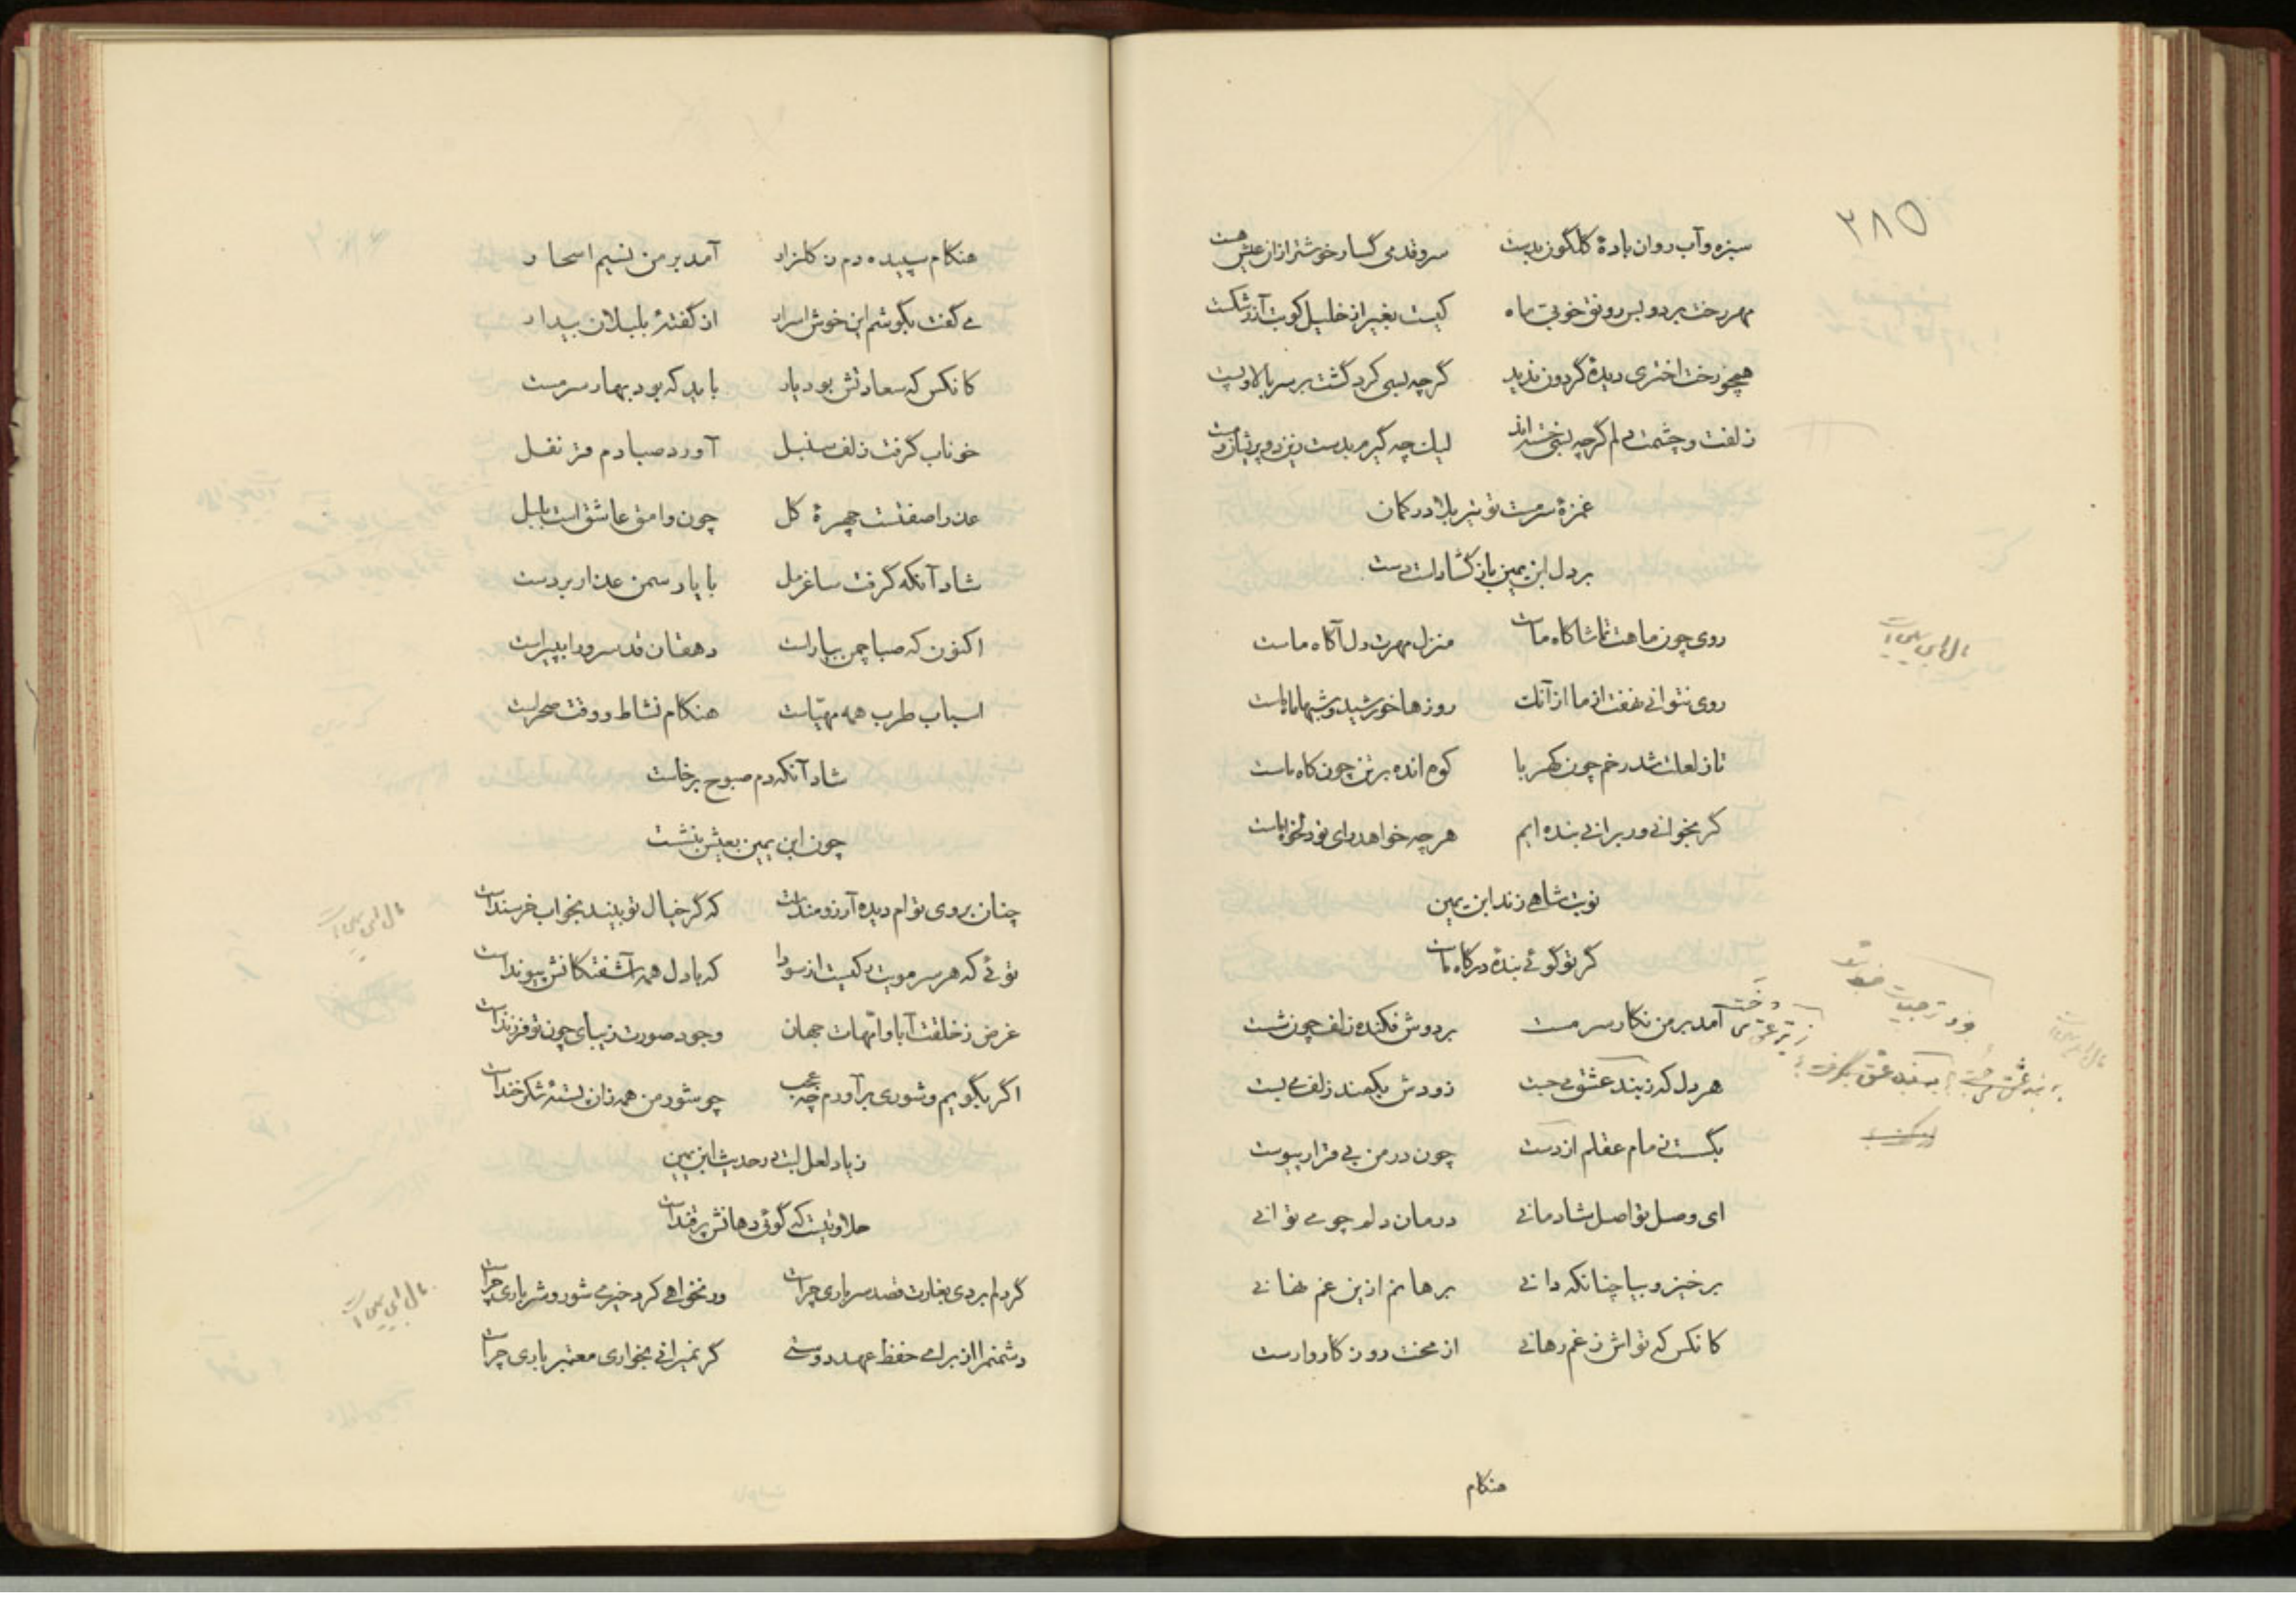 ۳۸۵
سبزه و آب روان بادهٔ کلکون بدست سروقدمی کسار خوشتر ازان عیش هست
مهر رخت برد و بس رونق خوبی ماه کیست بغیر از خلیل کو بت آذر شکست
همچو رخت اختری دیدهٔ گردون ندید گرچه بسی کرد گشت بر سر بالا و پست
زلفت و چشمت دلم گرچه بسی خسته‌اند لیک چه گیرم بدست زین دو پریشان و مست
غمزهٔ سرمست تو تیر بلا در کمان
بر دل ابن یمین باز گشادست دست
روی چون ماهت تماشاکاه ماست منزل مهرت دل آکاه ماست
روی نتوانی نهفتن از ما از آنک روزها خورشید و شبها ماه ماست
تا ز لعلت شد رخم چون کهربا کوه انده بر تن چون کاه ماست
کر بخوانی ور برانی بنده‌ایم هر چه خواهد رای تو دلخواه ماست
نوبت شاهی زند ابن یمین
گر تو گوئی بندهٔ درکاه ماست
آمد بر من نکار سرمست بر دوش فکنده زلف چون شست
هر دل که ز بند عشق می‌جست زودش بکمند زلف می‌بست
بگسست زمام عقلم از دست چون در من بی قرار پیوست
ای وصل تو اصل شادمانی درمان دلم چو می‌توانی
برخیز و بیا چنانکه دانی برهانم ازین غم نهانی
کانکس که تواش ز غم رهانی از محنت روزکار وارست
هنکام
هنکام سپیده دم ز کلزار آمد بر من نسیم اسحار
می‌گفت بگوشم این خوش اسرار از گفتهٔ بلبلان بیدار
کانکس که سعادتش بود یار باید که بود بهار سرمست
خوناب گرفت زلف سنبل آورد صبا دم قرنفل
عذرا صفتست چهرهٔ کل چون وامق عاشق است بلبل
شاد آنکه گرفت ساغر مل با یار سمن عذار بر دست
اکنون که صبا چمن بیاراست دهقان قد سرو را بپیراست
اسباب طرب همه مهیّاست هنکام نشاط و وقت صحراست
شاد آنکه دم صبوح برخاست
چون ابن یمین بعیش بنشست
چنان بروی توام دیده آرزومنداست که گر خیال تو بیند بخواب خرسنداست
توئی که هر سر مویت که کیست از سودا که با دل همه آشفتکانش پیونداست
غرض ز خلقت آبا و امّهات جهان وجود صورت زیبای چون تو فرزنداست
اگر بگویم و شوری برآورم چه عجب چو شور من همه زان پستهٔ شکرخنداست
ز یاد لعل لبت در حدیث ابن یمین
حلاوتیست که گوئی دهانش پر قنداست
گر دلم بردی بغارت قصد سر باری چراست ور نخواهی کرد خیری شور و شر باری چراست
دشمنم را از برای حفظ عهد دوستی کر نمیرانی بخواری معتبر باری چراست